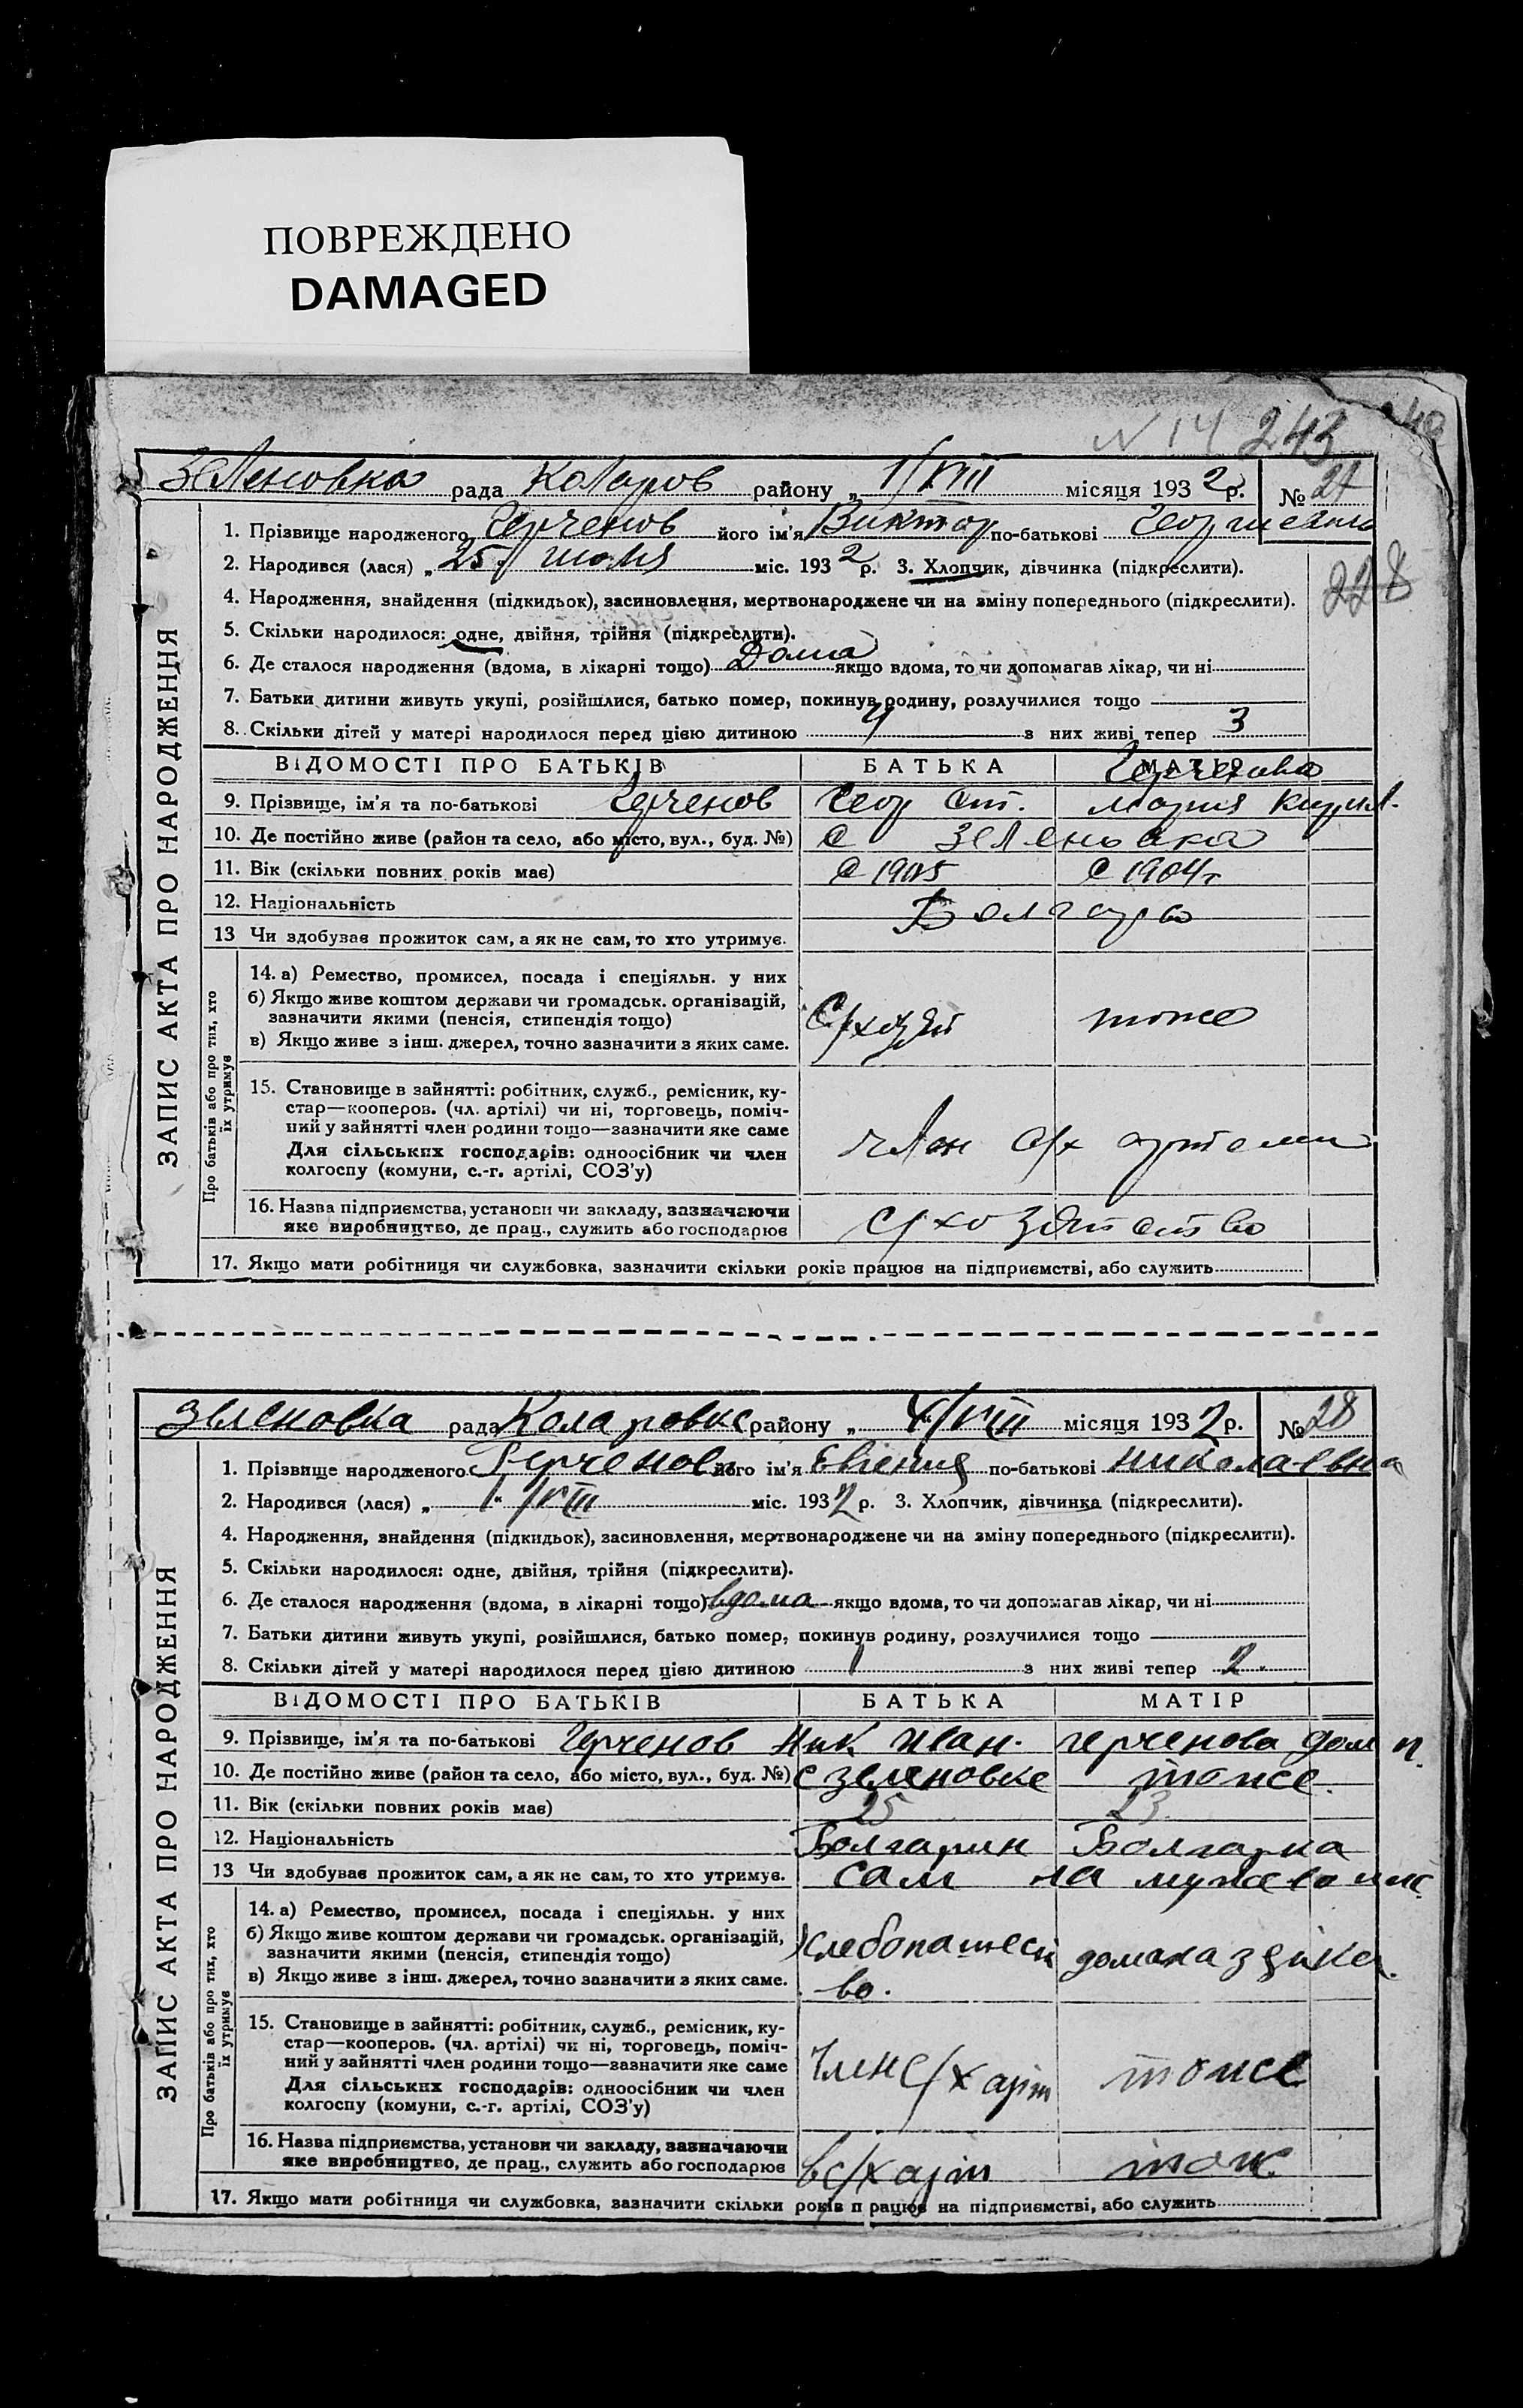 ПОВРЕЖДЕНО
DAMAGED
N 14 243
Зеленовка рада Коларов району „ 1/VIII місяця 1932 р. № 27
1. Прізвище народженого Герченов його ім'я Виктор по-батькові
2. Народився (лася) „ 25 / июля міс. 1932 р. 3. Хлопчик, дівчинка (підкреслити).
228
4. Народження, знайдення (підкидьок), засиновлення, мертвонароджене чи на зміну попереднього (підкреслити).
5. Скільки народилося: одне, двійня, трійня (підкреслити).
6. Де сталося народження (вдома, в лікарні тощо) Дома якщо вдома, то чи допомагав лікар, чи ні
7. Батьки дитини живуть укупі, розійшлися, батько помер, покинув родину, розлучилися тощо
8. Скільки дітей у матері народилося перед цією дитиною 4 з них живі тепер 3
ВІДОМОСТІ ПРО БАТЬКІВ БАТЬКА МАТІР
Герченова
9. Прізвище, ім'я та по-батькові Герченов Геор Ст. Мария Кирил.
10. Де постійно живе (район та село, або місто, вул., буд. №) с Зеленовка
11. Вік (скільки повних років має) с 1905 с 1904 г
12. Національність Болгары
13 Чи здобуває прожиток сам, а як не сам, то хто утримує.
ЗАПИС АКТА ПРО НАРОДЖЕННЯ
Про батьків або про тих, хто їх утримує
14. а) Ремество, промисел, посада і спеціяльн. у них
б) Якщо живе коштом держави чи громадськ. організацій,
зазначити якими (пенсія, стипендія тощо)
в) Якщо живе з інш. джерел, точно зазначити з яких саме.
С/хозяй тоже
15. Становище в зайнятті: робітник, служб., ремісник, ку-
стар—кооперов. (чл. артілі) чи ні, торговець, поміч-
ний у зайнятті член родини тощо—зазначити яке саме
Для сільських господарів: одноосібник чи член
колгоспу (комуни, с.-г. артілі, СОЗ'у)
член с/х артели
16. Назва підприємства, установи чи закладу, зазначаючи
яке виробництво, де прац., служить або господарює
с/хозяйство
17. Якщо мати робітниця чи службовка, зазначити скільки років працює на підприємстві, або служить
Зеленовка рада Коларовке району „ 4/VIII місяця 1932 р. № 28
1. Прізвище народженого Герченова його ім'я Евгения по-батькові Николаевна
2. Народився (лася) „ 1 " /VIII міс. 1932 р. 3. Хлопчик, дівчинка (підкреслити).
4. Народження, знайдення (підкидьок), засиновлення, мертвонароджене чи на зміну попереднього (підкреслити).
5. Скільки народилося: одне, двійня, трійня (підкреслити).
6. Де сталося народження (вдома, в лікарні тощо) вдома якщо вдома, то чи допомагав лікар, чи ні
7. Батьки дитини живуть укупі, розійшлися, батько помер, покинув родину, розлучилися тощо
8. Скільки дітей у матері народилося перед цією дитиною 1 з них живі тепер 2
ВІДОМОСТІ ПРО БАТЬКІВ БАТЬКА МАТІР
9. Прізвище, ім'я та по-батькові Герченов Ник Иван. Герченова Дом
10. Де постійно живе (район та село, або місто, вул., буд. №) с Зеленовке тоже.
11. Вік (скільки повних років має) 25 23
12. Національність Болгарин Болгарка
13 Чи здобуває прожиток сам, а як не сам, то хто утримує. сам на
ЗАПИС АКТА ПРО НАРОДЖЕННЯ
Про батьків або про тих, хто їх утримує
14. а) Ремество, промисел, посада і спеціяльн. у них
б) Якщо живе коштом держави чи громадськ. організацій,
зазначити якими (пенсія, стипендія тощо)
в) Якщо живе з інш. джерел, точно зазначити з яких саме.
Хлебопашест
во.
15. Становище в зайнятті: робітник, служб., ремісник, ку-
стар—кооперов. (чл. артілі) чи ні, торговець, поміч-
ний у зайнятті член родини тощо—зазначити яке саме
Для сільських господарів: одноосібник чи член
колгоспу (комуни, с.-г. артілі, СОЗ'у)
член с/х арт тоже
16. Назва підприємства, установи чи закладу, зазначаючи
яке виробництво, де прац., служить або господарює
в с/х арт тож
17. Якщо мати робітниця чи службовка, зазначити скільки років працює на підприємстві, або служить